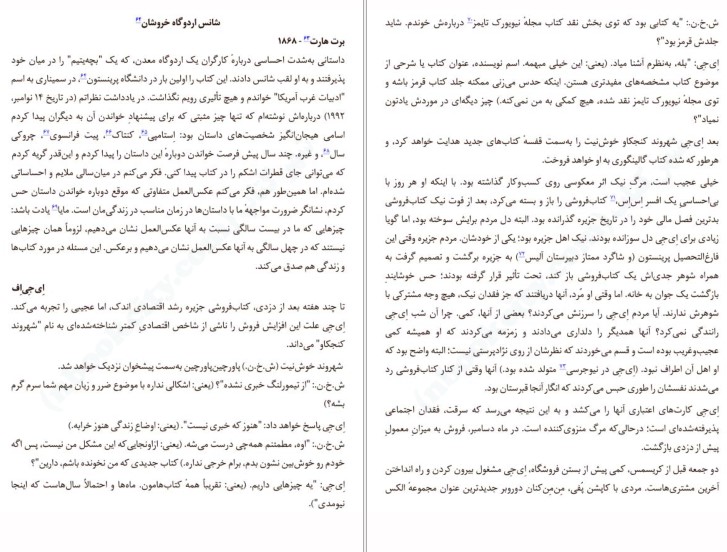 شانس اردوگاه خروشان۴۴
برت هارت۴۳ - ۱۸۶۸
داستانی به‌شدت احساسی دربارهٔ کارگران یک اردوگاه معدن، که یک "بچه‌یتیم" را در میان خود
پذیرفتند و به او لقب شانس دادند. این کتاب را اولین بار در دانشگاه پرینستون، در سمیناری به اسم
"ادبیات غرب آمریکا" خواندم و هیچ تأثیری رویم نگذاشت. در یادداشت نظراتم (در تاریخ ۱۴ نوامبر،
۱۹۹۲) درباره‌اش نوشته‌ام که تنها چیز مثبتی که برای پیشنهادِ خواندن آن به دیگران پیدا کردم
اسامی هیجان‌انگیز شخصیت‌های داستان بود: اِستامپی، کنتاک، پیت فرانسوی، چروکی
سال، و غیره. چند سال پیش فرصت خواندن دوبارهٔ این داستان را پیدا کردم و این‌قدر گریه کردم
که می‌توانی جای قطرات اشکم را در کتاب پیدا کنی. فکر می‌کنم در میان‌سالی ملایم و احساساتی
شده‌ام. اما همین‌طور هم، فکر می‌کنم عکس‌العمل متفاوتی که موقع دوباره خواندن داستان حس
کردم، نشانگر ضرورت مواجههٔ ما با داستان‌ها در زمان مناسب در زندگی‌مان است. مایا یادت باشد:
چیزهایی که ما در بیست سالگی نسبت به آنها عکس‌العمل نشان می‌دهیم، لزوماً همان چیزهایی
نیستند که در چهل سالگی به آنها عکس‌العمل نشان می‌دهیم و برعکس. این مسئله در مورد کتاب‌ها
و زندگی هم صدق می‌کند.
اِی‌جی‌اِف
تا چند هفته بعد از دزدی، کتاب‌فروشی جزیره رشد اقتصادی اندک، اما عجیبی را تجربه می‌کند.
اِی‌جی علت این افزایش فروش را ناشی از شاخص اقتصادی کمتر شناخته‌شده‌ای به نام "شهروند
کنجکاو" می‌داند.
شهروند خوش‌نیت (ش.خ.ن.) پاورچین‌پاورچین به‌سمت پیشخوان نزدیک خواهد شد.
ش.خ.ن.: "از تیمورلنگ خبری نشده"؟ (یعنی: اشکالی نداره با موضوع ضرر و زیان مهم شما سرم گرم
بشه؟)
اِی‌جی پاسخ خواهد داد: "هنوز که خبری نیست". (یعنی: اوضاع زندگی هنوز خرابه.)
ش.خ.ن.: "اوه، مطمئنم همه‌چی درست می‌شه. (یعنی: ازاونجایی‌که این مشکل من نیست، پس اگه
خودم رو خوش‌بین نشون بدم، برام خرجی نداره.) کتاب جدیدی که من نخونده باشم، دارین"؟
اِی‌جی: "یه چیزهایی داریم. (یعنی: تقریباً همهٔ کتاب‌هامون. ماه‌ها و احتمالاً سال‌هاست که اینجا
نیومدی)".
ش.خ.ن.: "یه کتابی بود که توی بخش نقد کتاب مجلهٔ نیویورک تایمز درباره‌ش خوندم. شاید
جلدش قرمز بود"؟
اِی‌جی: "بله، به‌نظرم آشنا میاد. (یعنی: این خیلی مبهمه. اسم نویسنده، عنوان کتاب یا شرحی از
موضوع کتاب مشخصه‌های مفیدتری هستن. اینکه حدس می‌زنی ممکنه جلد کتاب قرمز باشه و
توی مجلهٔ نیویورک تایمز نقد شده، هیچ کمکی به من نمی‌کنه.) چیز دیگه‌ای در موردش یادتون
نمیاد"؟
بعد اِی‌جی شهروند کنجکاو خوش‌نیت را به‌سمت قفسهٔ کتاب‌های جدید هدایت خواهد کرد، و
هرطور که شده کتاب گالینگوری به او خواهد فروخت.
خیلی عجیب است. مرگ نیک اثر معکوسی روی کسب‌وکار گذاشته بود. با اینکه او هر روز با
بی‌احساسیِ یک افسر اِس‌اِس، کتاب‌فروشی را باز و بسته می‌کرد، بعد از فوت نیک کتاب‌فروشی
بدترین فصل مالی خود را در تاریخ جزیره گذرانده بود. البته دل مردم برایش سوخته بود، اما گویا
زیادی برای اِی‌جی دل سوزانده بودند. نیک اهل جزیره بود؛ یکی از خودشان. مردم جزیره وقتی این
فارغ‌التحصیل پرینستون (و شاگرد ممتاز دبیرستان آلیس) به جزیره برگشت و تصمیم گرفت به
همراه شوهر جدی‌اش یک کتاب‌فروشی باز کند، تحت تأثیر قرار گرفته بودند؛ حس خوشایندِ
بازگشت یک جوان به خانه. اما وقتی او مُرد، آنها دریافتند که جز فقدان نیک، هیچ وجه مشترکی با
شوهرش ندارند. آیا مردم اِی‌جی را سرزنش می‌کردند؟ بعضی از آنها، کمی. چرا آن شب اِی‌جی
رانندگی نمی‌کرد؟ آنها همدیگر را دلداری می‌دادند و زمزمه می‌کردند که او همیشه کمی
عجیب‌وغریب بوده است و قسم می‌خوردند که نظرشان از روی نژادپرستی نیست؛ البته واضح بود که
او اهل آن اطراف نبود. (اِی‌جی در نیوجرسی متولد شده بود.) آنها وقتی از کنار کتاب‌فروشی رد
می‌شدند نفسشان را طوری حبس می‌کردند که انگار آنجا قبرستان بود.
اِی‌جی کارت‌های اعتباری آنها را می‌کشد و به این نتیجه می‌رسد که سرقت، فقدان اجتماعی
پذیرفته‌شده‌ای است؛ درحالی‌که مرگ منزوی‌کننده است. در ماه دسامبر، فروش به میزان معمولِ
پیش از دزدی بازگشت.
دو جمعه قبل از کریسمس، کمی پیش از بستن فروشگاه، اِی‌جی مشغول بیرون کردن و راه انداختن
آخرین مشتری‌هاست. مردی با کاپشن پُفی، مِن‌مِن‌کنان دوروبر جدیدترین عنوان مجموعهٔ الکس